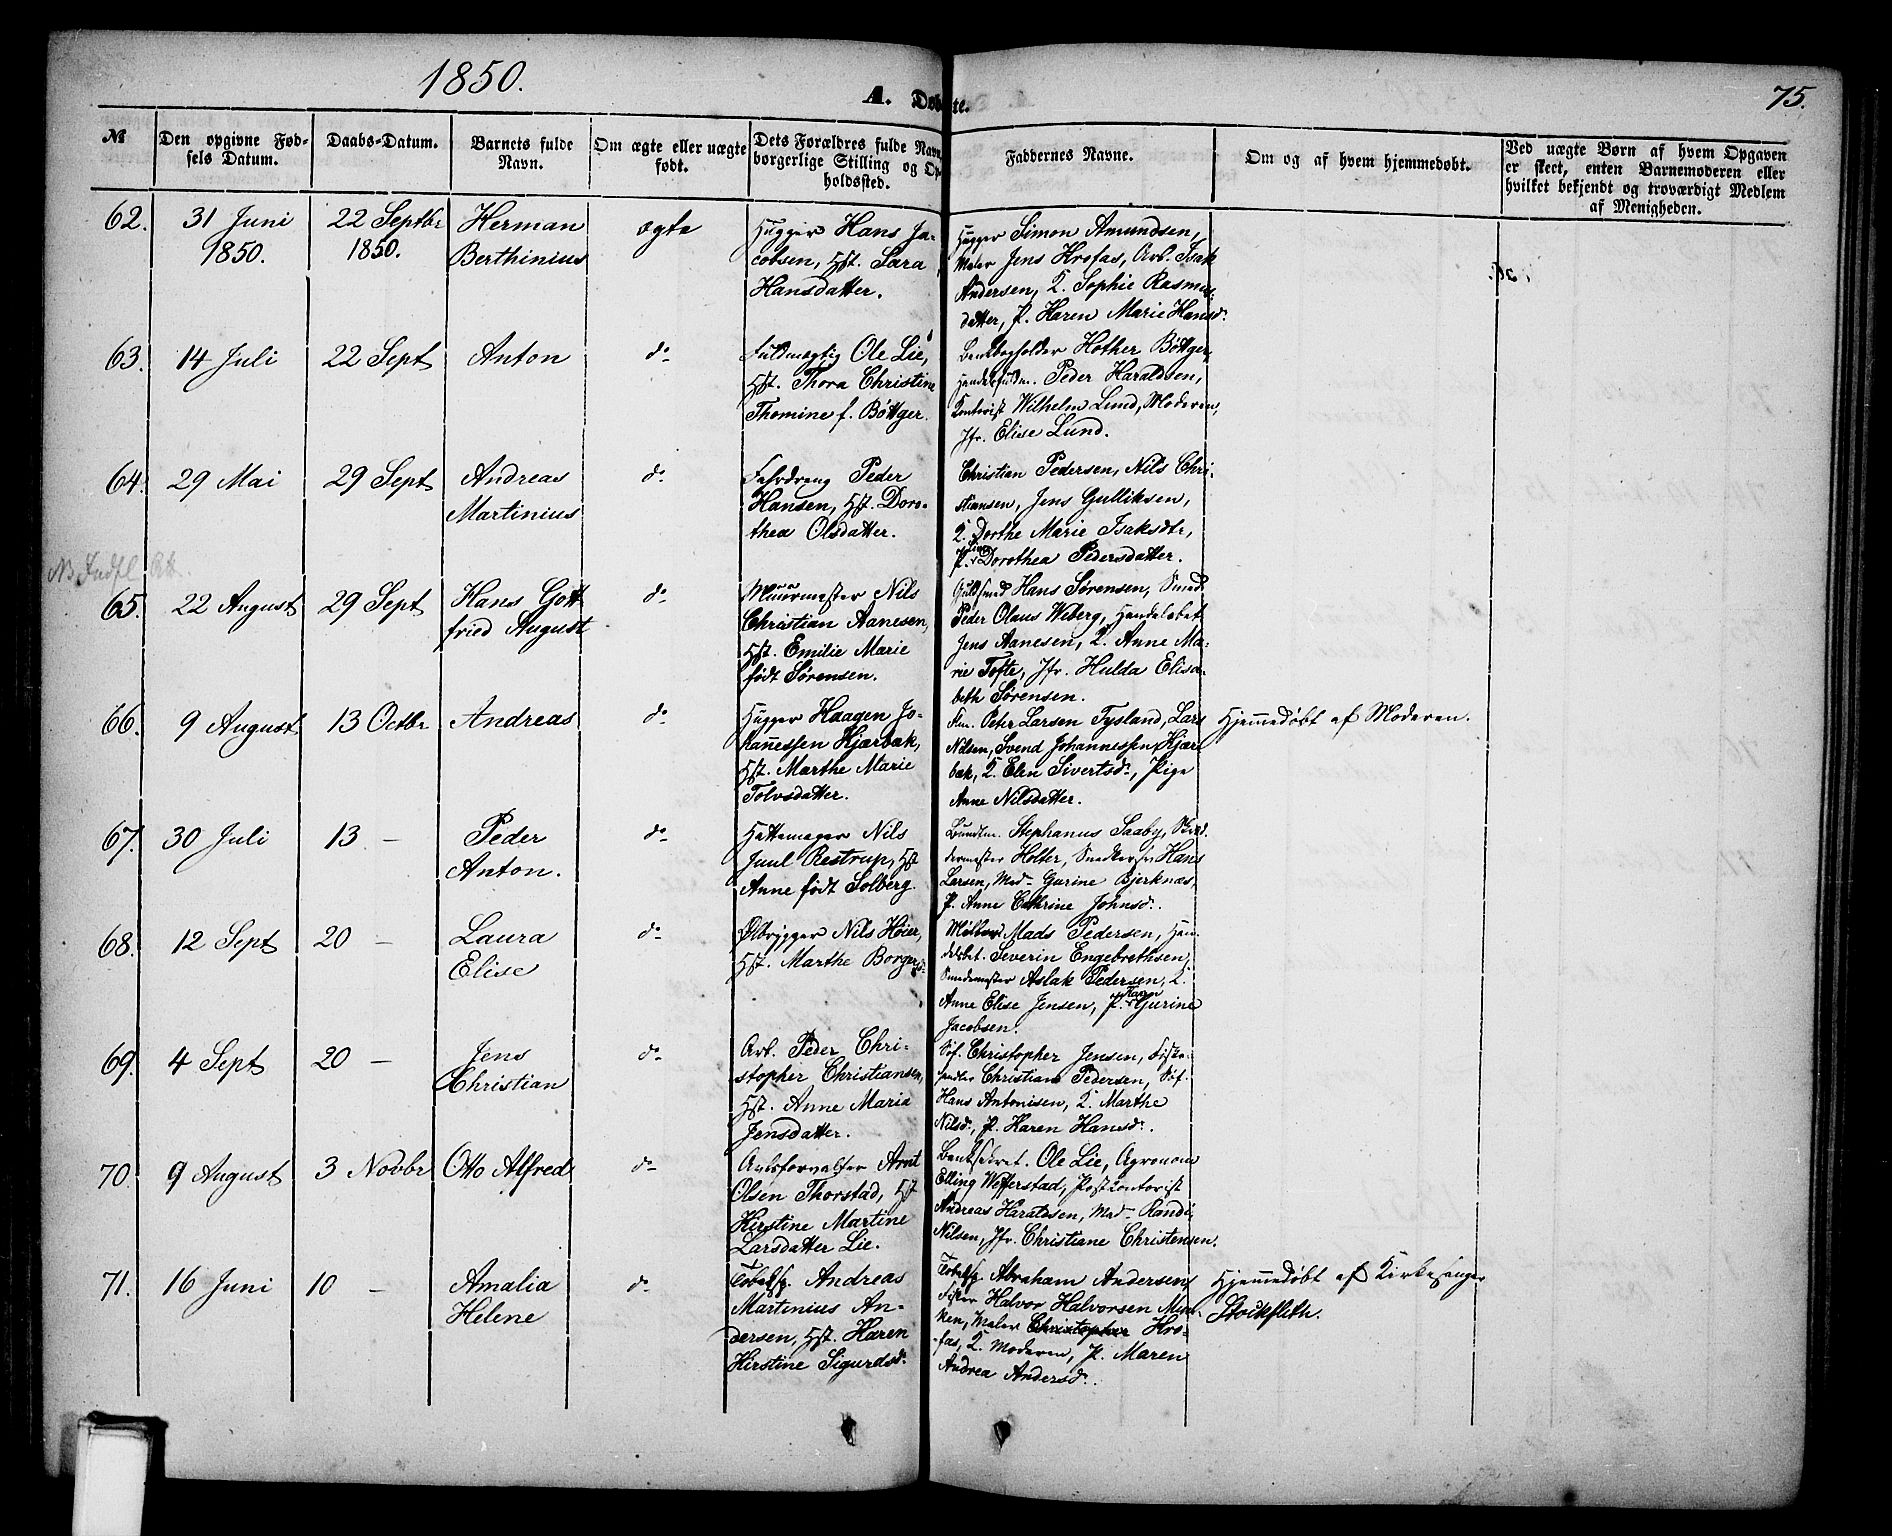 1850.
A. Døbte.
75.
№
Den opgivne Fødsels Datum.
Daabs-Datum.
Barnets fulde Navn.
Om ægte eller uægte født.
Dets Forældres fulde Navn, borgerlige Stilling og Opholdssted.
Faddernes Navne.
Om og af hvem hjemmedøbt.
Ved uægte Børn af hvem Opgaven er skeet, enten Barnemoderen eller hvilket bekjendt og troværdigt Medlem af Menigheden.
62.
31 Juni
1850.
22 Septbr
1850.
Herman
Berthinius
ægte
Hugger Hans Ja-
cobsen, Hst. Sara
Hansdatter.
Hugger Simon Amundsen,
Maler Jens Krefas, Arb. Isak
Andersen, K. Sophie Rasmus-
datter, P. Karen Marie Hansd.
63.
14 Juli
22 Sept
Anton
do
Fuldmægtig Ole Lie,
Hst. Thora Christine
Thomine f. Bøttger.
Bankbogholder Hother Bøttger,
Handelsfuldm. Peder Haraldsen,
Kontorist Wilhelm Lund, Moderen,
Jfr. Elise Lund.
64.
29 Mai
29 Sept
Andreas
Martinius
do
Peder
Hansen, Hst. Doro-
thea Olsdatter.
Christian Pedersen, Nils Chri-
stiansen, Jens Gulliksen,
K. Dorthe Marie Isaksdtr,
P. Dorothea Pedersdatter.
65.
22 August
29 Sept
Hans Gott-
fried August
do
Muurmester Nils
Christian Aanesen,
Hst. Emilie Marie
født Sørensen.
Guldsmed Hans Sørensen, Smed
Peder Olaus Wiberg, Handelsbet.
Jens Aanesen, K. Anne Ma-
rie Tofte, Jfr. Hulda Elisa-
beth Sørensen.
66.
9 August
13 Octbr
Andreas
do
Hugger Haagen Jo-
hannessen Kjærbæk,
Hst. Marthe Marie
Tolvsdatter.
Peter Larsen Tysland, Lars
Nilsen, Svend Johannessen Kjær-
bæk, K. Elen Sivertsd., Pige
Anne Nilsdatter.
Hjemmedøbt af Moderen.
67.
30 Juli
13 -
Peder
Anton.
do
Hattemager Nils
Juul Restrup, Hst.
Anne født Solberg.
Bundtm. Stephanus Saaby, Skræd-
dermester Holter, Snedkersv. Hans
Larsen, Mad. Gurine Bjerknæs,
P. Anne Cathrine Johnsd.
68.
12 Sept
20 -
Laura
Elise
do
Ølbrygger Nils Høier,
Hst. Marthe Borgersd.
Mads Pedersen, Han-
delsbet. Severin Engebrethsen,
Smedemester Aslak Pedersen, K.
Anne Elise Jensen, P. Karen Gurine
Jacobsen.
69.
4 Sept
20 -
Jens
Christian
do
Arb. Peder Chri-
stopher Christiansen,
Hst. Anne Maria
Jensdatter.
Søf. Christopher Jensen, Fiske-
handler Christian Pedersen, Søf.
Hans Antonisen, K. Marthe
Nilsd., P. Karen Hansd.
70.
9 August
3 Novbr
Otto Alfred
do
Avlsforvalter Arnt
Olsen Thorstad, Hst.
Kirstine Martine
Larsdatter Lie.
Banksekret. Ole Lie, Agronom
Elling Wefferstad, Postkontorist
Andreas Haraldsen, Mad. Randi
Nilsen, Jfr. Christiane Christensen.
71.
16 Juni
10 -
Amalia
Helene
do
Tobaksp. Andreas
Martinius An-
dersen, Hst. Karen
Kirstine Sigurdsd.
Tobaksp. Abraham Andersen,
Fisker Halvor Halvorsen Mun-
ken, Maler Christopher Kre-
fas, K. Moderen, P. Maren
Andrea Andersd.
Hjemmedøbt af Kirkesanger
Stockfleth.